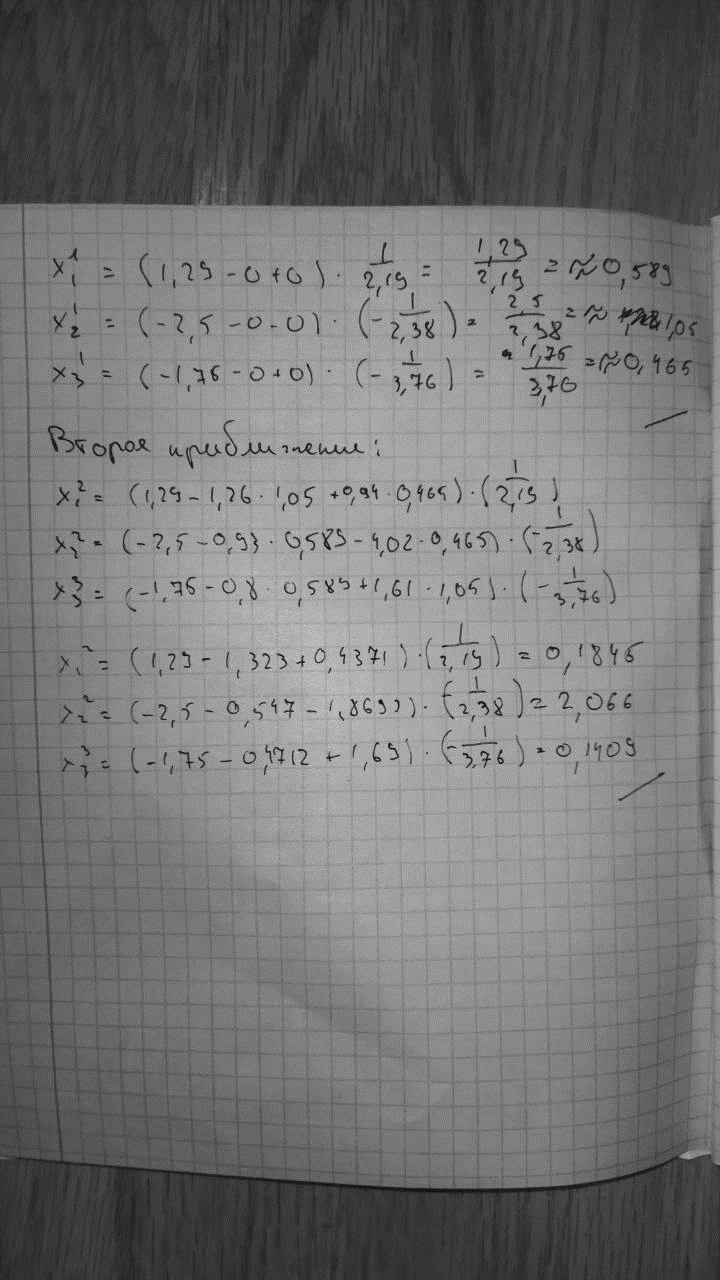 x₁¹ = (1,29 - 0 + 0) · 1/2,19 = 1,29/2,19 = ≈ 0,589
x₂¹ = (-2,5 - 0 - 0) · (-1/2,38) = 2,5/2,38 = ≈ 1,05
x₃¹ = (-1,75 - 0 + 0) · (-1/3,76) = 1,75/3,76 = ≈ 0,465
Второе приближение:
x₁² = (1,29 - 1,26 · 1,05 + 0,94 · 0,465) · (1/2,19)
x₂² = (-2,5 - 0,93 · 0,589 - 4,02 · 0,465) · (-1/2,38)
x₃³ = (-1,75 - 0,8 · 0,589 + 1,61 · 1,05) · (-1/3,76)
x₁² = (1,29 - 1,323 + 0,4371) · (1/2,19) = 0,1845
x₂² = (-2,5 - 0,547 - 1,8693) · (-1/2,38) = 2,066
x₃³ = (-1,75 - 0,4712 + 1,69) · (-1/3,76) = 0,1409